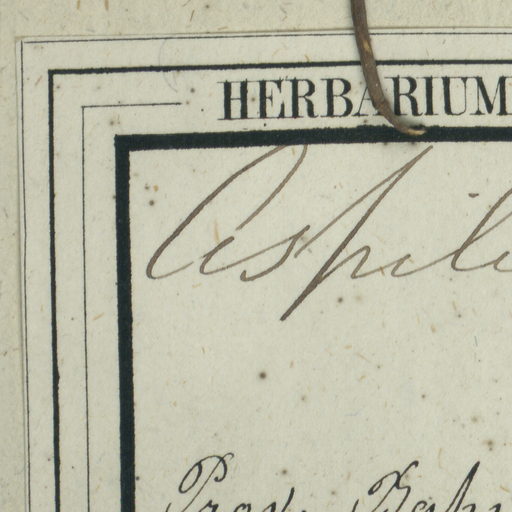 HERBARIUM
Aspili
Prov. Bahi